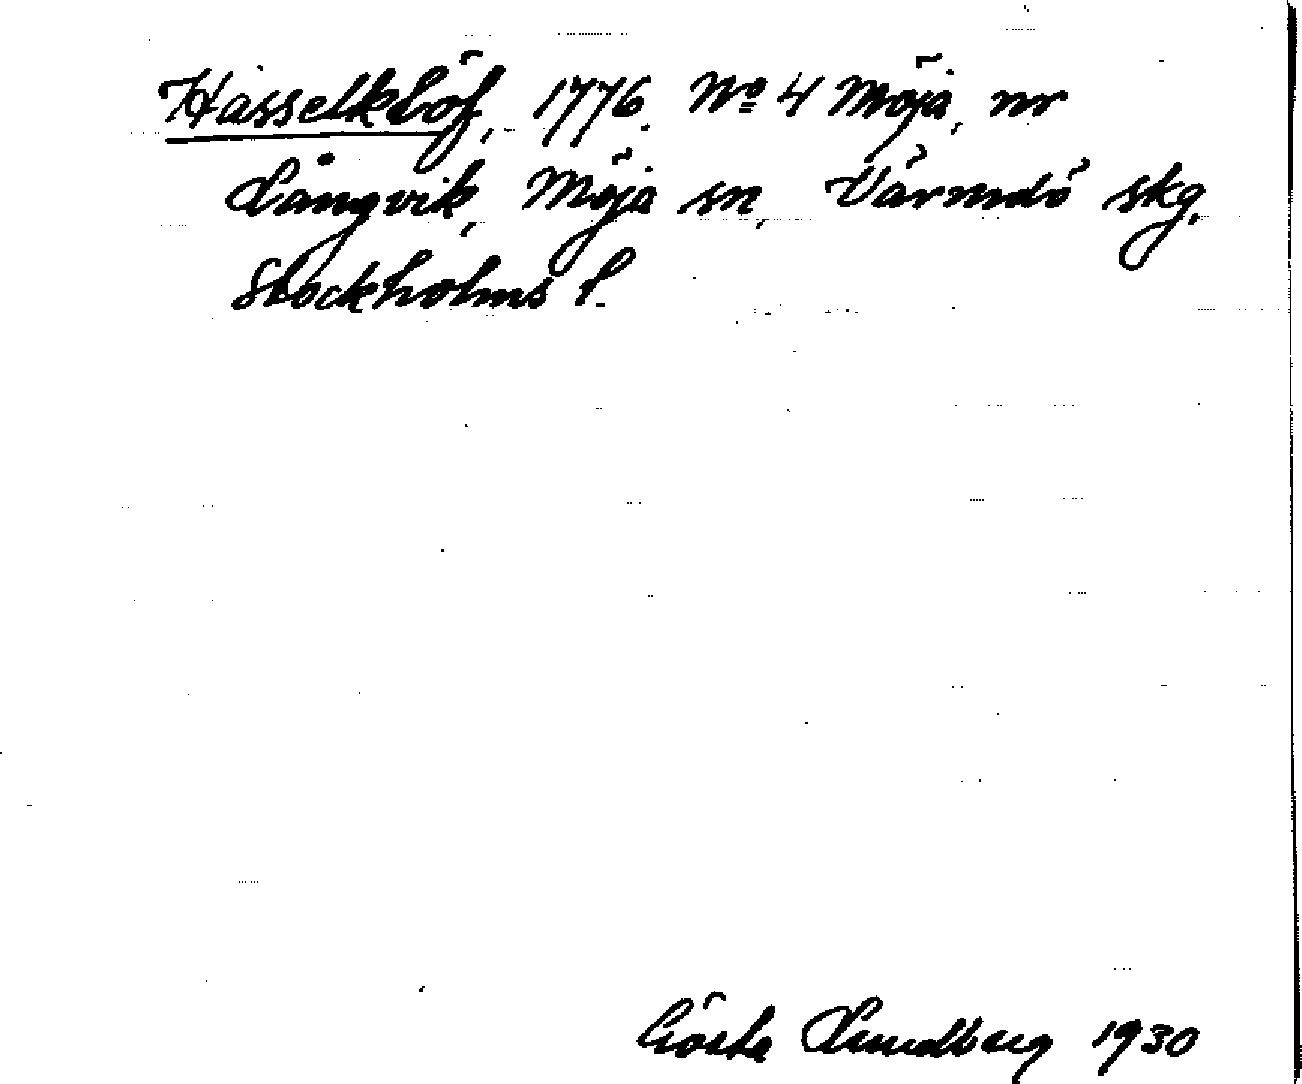 Hasselklöf, 1776. No 4 Möja, nr
Långvik, Möja sn, Värmdö skg,
Stockholms l.
Gösta Lundberg 1930